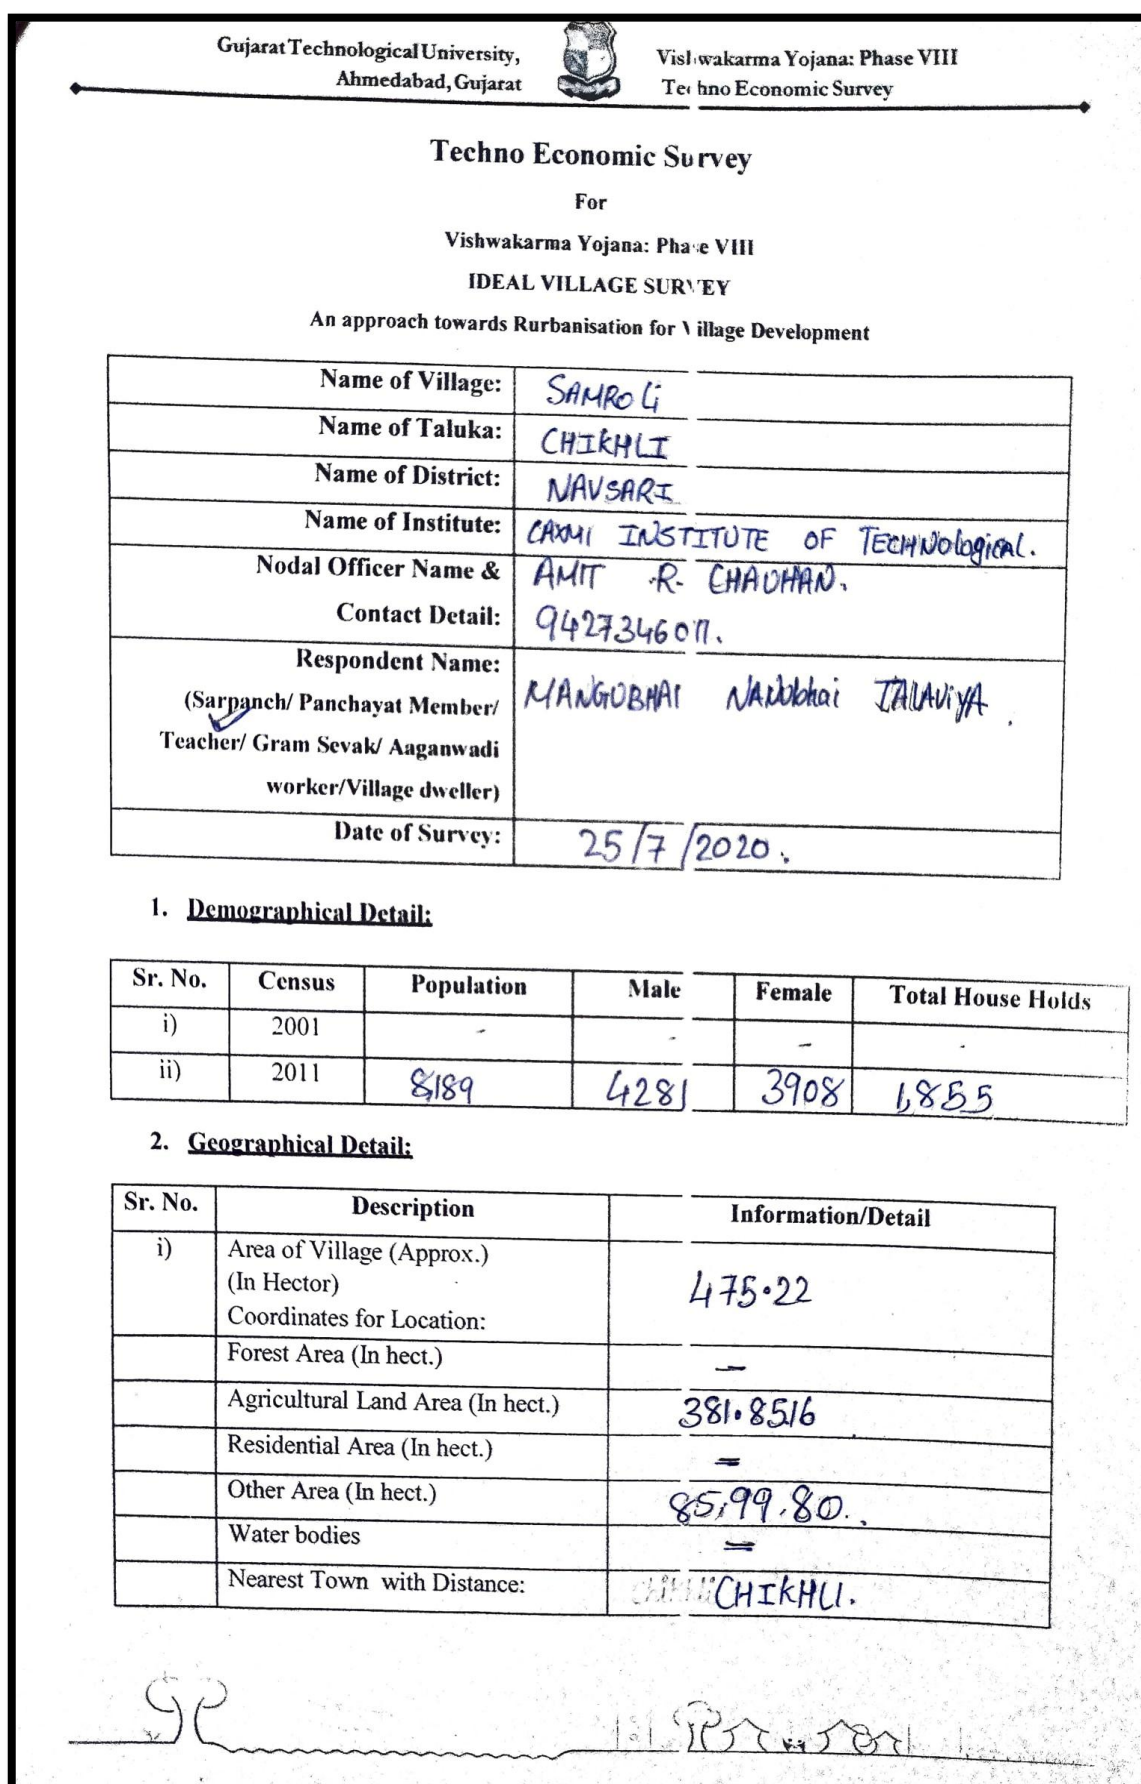 Gujarat Technological University,
Ahmedabad, Gujarat
Vishwakarma Yojana: Phase VIII
Techno Economic Survey
Techno Economic Survey
For
Vishwakarma Yojana: Phase VIII
IDEAL VILLAGE SURVEY
An approach towards Rurbanisation for Village Development
Name of Village: SAMROLi
Name of Taluka: CHIKHLI
Name of District: NAVSARI
Name of Institute: LAXMI INSTITUTE OF TECHNOlogical.
Nodal Officer Name & AMIT R. CHAUHAN.
Contact Detail: 9427346011.
Respondent Name:
(Sarpanch/ Panchayat Member/ MANGUBHAI NANUbhai TALAViYA.
Teacher/ Gram Sevak/ Aaganwadi
worker/Village dweller)
Date of Survey: 25/7/2020.
1. Demographical Detail:
Sr. No. Census Population Male Female Total House Holds
i) 2001 - - - -
ii) 2011 8,189 4281 3908 1,855
2. Geographical Detail:
Sr. No. Description Information/Detail
i) Area of Village (Approx.)
(In Hector) 475.22
Coordinates for Location:
Forest Area (In hect.) -
Agricultural Land Area (In hect.) 381.8516
Residential Area (In hect.) =
Other Area (In hect.) 85,99.80..
Water bodies =
Nearest Town with Distance: CHIKHLI.